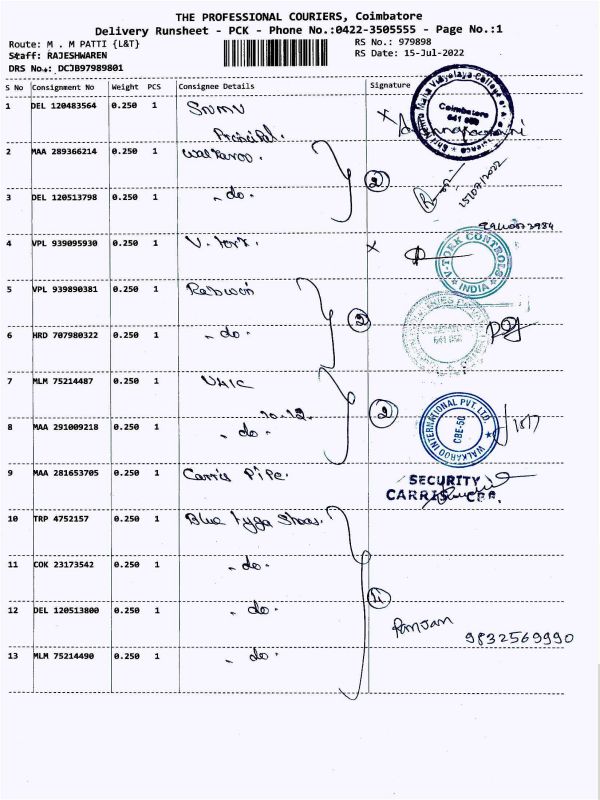 THE PROFESSIONAL COURIERS, Coimbatore
Delivery Runsheet - PCK - Phone No.:0422-3505555 - Page No.:1
Route: M . M PATTI {L&T} RS No.: 979898
Staff: RAJESHWAREN RS Date: 15-Jul-2022
DRS No.: DCJB97989801
S No Consignment No Weight PCS Consignee Details Signature
1 DEL 120483564 0.250 1 SNMV
Principal.
Coimbatore
641 050
2 MAA 289366214 0.250 1 Walkaroo.
2
3 DEL 120513798 0.250 1 - do - 15/07/2022
4 VPL 939095930 0.250 1 V. Tork. X
V-TORK CONTROLS
INDIA
5 VPL 939890381 0.250 1
2
6 HRD 707980322 0.250 1 - do -
7 MLM 75214487 0.250 1
2
8 MAA 291009218 0.250 1 - do -
WALKAROO INTERNATIONAL PVT. LTD.
CBE-50
9 MAA 281653705 0.250 1 Carris Pipe.
SECURITY
CARRIS CBE.
10 TRP 4752157 0.250 1 Blue Tyga Shoes.
11 COK 23173542 0.250 1 - do -
4
12 DEL 120513800 0.250 1 - do -
Ramjan
9832569990
13 MLM 75214490 0.250 1 - do -